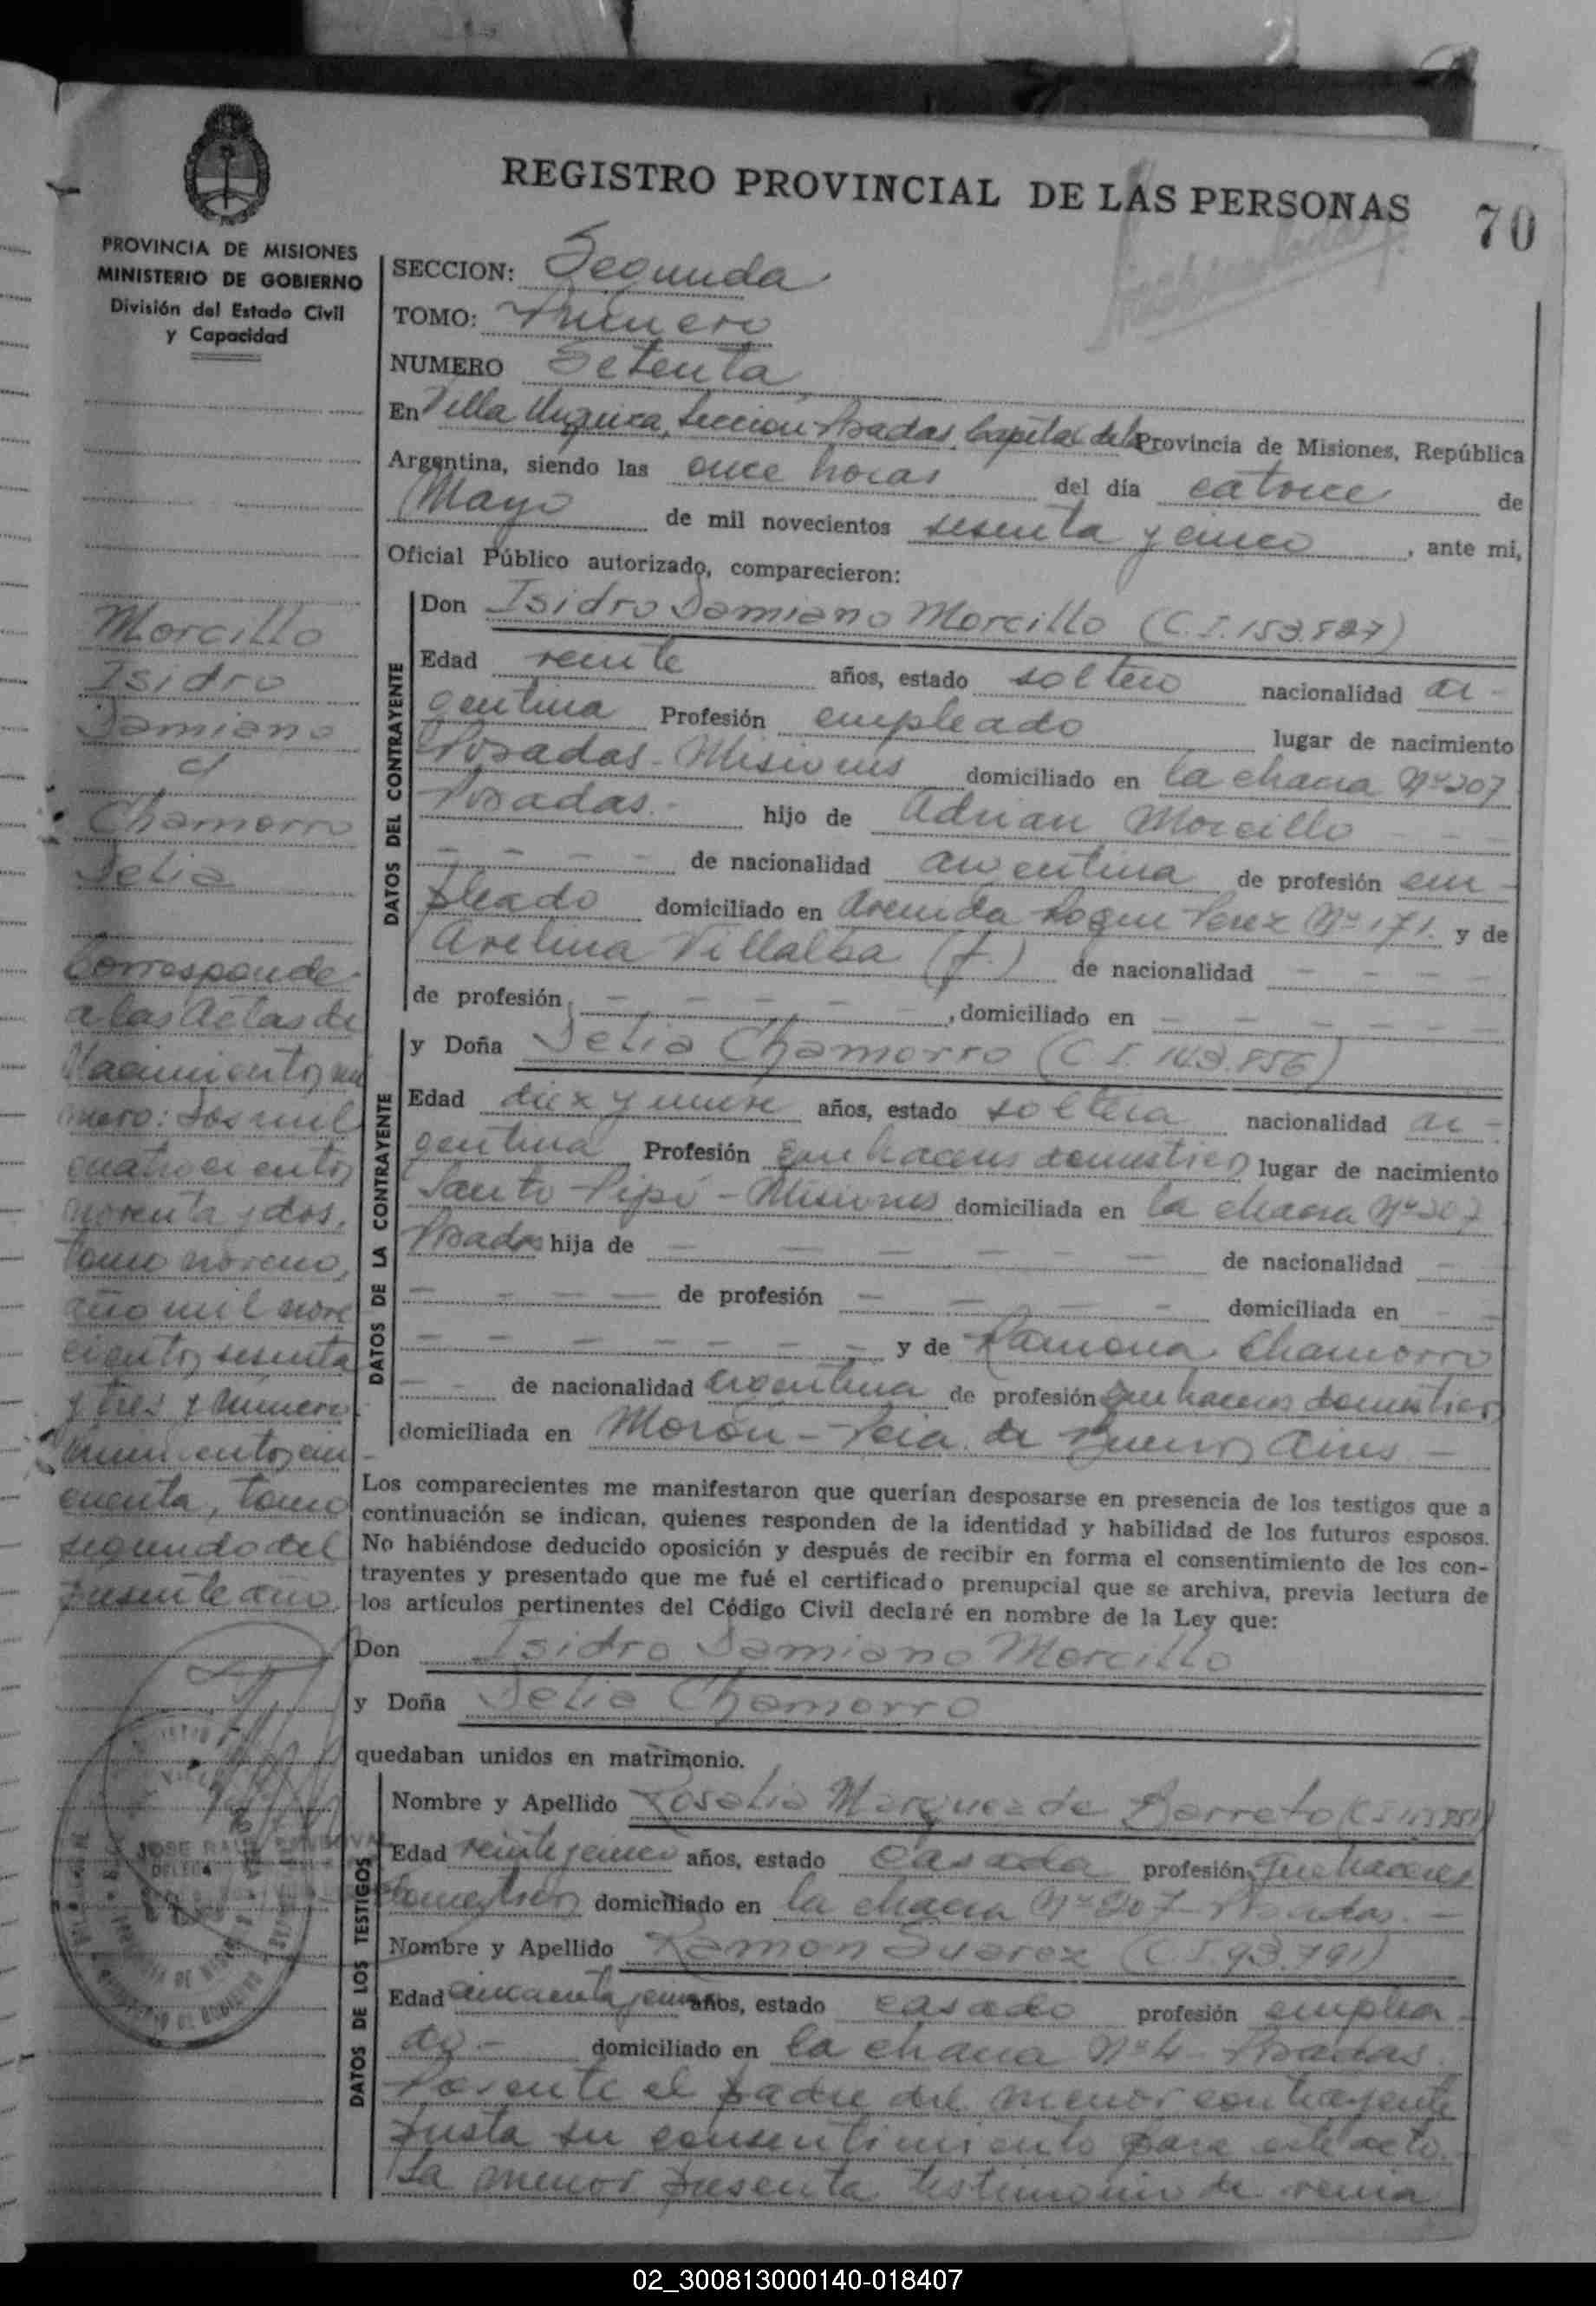 REGISTRO PROVINCIAL DE LAS PERSONAS
70
PROVINCIA DE MISIONES
MINISTERIO DE GOBIERNO
División del Estado Civil
y Capacidad
SECCION: Segunda
TOMO: Primero
NUMERO Setenta
En Villa Urquiza, Sección Posadas, Capital de la Provincia de Misiones, República
Argentina, siendo las once horas del día catorce de
Mayo de mil novecientos sesenta y cinco, ante mi,
Oficial Público autorizado, comparecieron:
DATOS DEL CONTRAYENTE
Don Isidro Damiano Morcillo (C.I. 153.
Edad veinte años, estado soltero nacionalidad ar-
gentina Profesión empleado lugar de nacimiento
Posadas - Misiones domiciliado en la chacra Nº 207
Posadas.- hijo de Adrian Morcillo - - -
- - - - de nacionalidad argentina de profesión em-
pleado domiciliado en Avenida Roque Perez Nº 171. y de
Avelina Villalba (f.) de nacionalidad - - - -
de profesión, - - - - , domiciliado en - - - - - -
DATOS DE LA CONTRAYENTE
y Doña Delia Chamorro (C.I. 143.856)
Edad diez y nueve años, estado soltera nacionalidad ar-
gentina Profesión quehaceres domesticos lugar de nacimiento
Santo Pipó - Misiones domiciliada en la chacra Nº 207
Posadas hija de - - - - - - de nacionalidad -
- - - - de profesión - - - - domiciliada en - -
- - - - - - y de Ramona Chamorro
- - de nacionalidad argentina de profesión quehaceres domesticos
domiciliada en Morón - Pcia. de Buenos Aires -
Los comparecientes me manifestaron que querían desposarse en presencia de los testigos que a
continuación se indican, quienes responden de la identidad y habilidad de los futuros esposos.
No habiéndose deducido oposición y después de recibir en forma el consentimiento de los con-
trayentes y presentado que me fué el certificado prenupcial que se archiva, previa lectura de
los artículos pertinentes del Código Civil declaré en nombre de la Ley que:
Don Isidro Damiano Morcillo
y Doña Delia Chamorro
quedaban unidos en matrimonio.
DATOS DE LOS TESTIGOS
Nombre y Apellido Rosalia Marquez de Barreto
Edad veinte y cinco años, estado casada profesión, quehaceres
domesticos domiciliado en la chacra Nº 207 - Posadas. -
Nombre y Apellido Ramon Suarez (C.I. 93.791)
Edad cincuenta y años, estado casado profesión emplea-
do - domiciliado en la chacra Nº 4 - Posadas.
Presente el padre del menor contrayente
presta su consentimiento para este acto.
La menor presenta testimonio de venia
Morcillo
Isidro
Damiano
c/
Chamorro
Delia
Corresponde
a las Actas de
Nacimientos nu
mero: dos mil
cuatrocientos
noventa y dos,
tomo noveno,
año mil nove
cientos sesenta
y tres y número
cin
cuenta, tomo
segundo del
presente año.
02_300813000140-018407